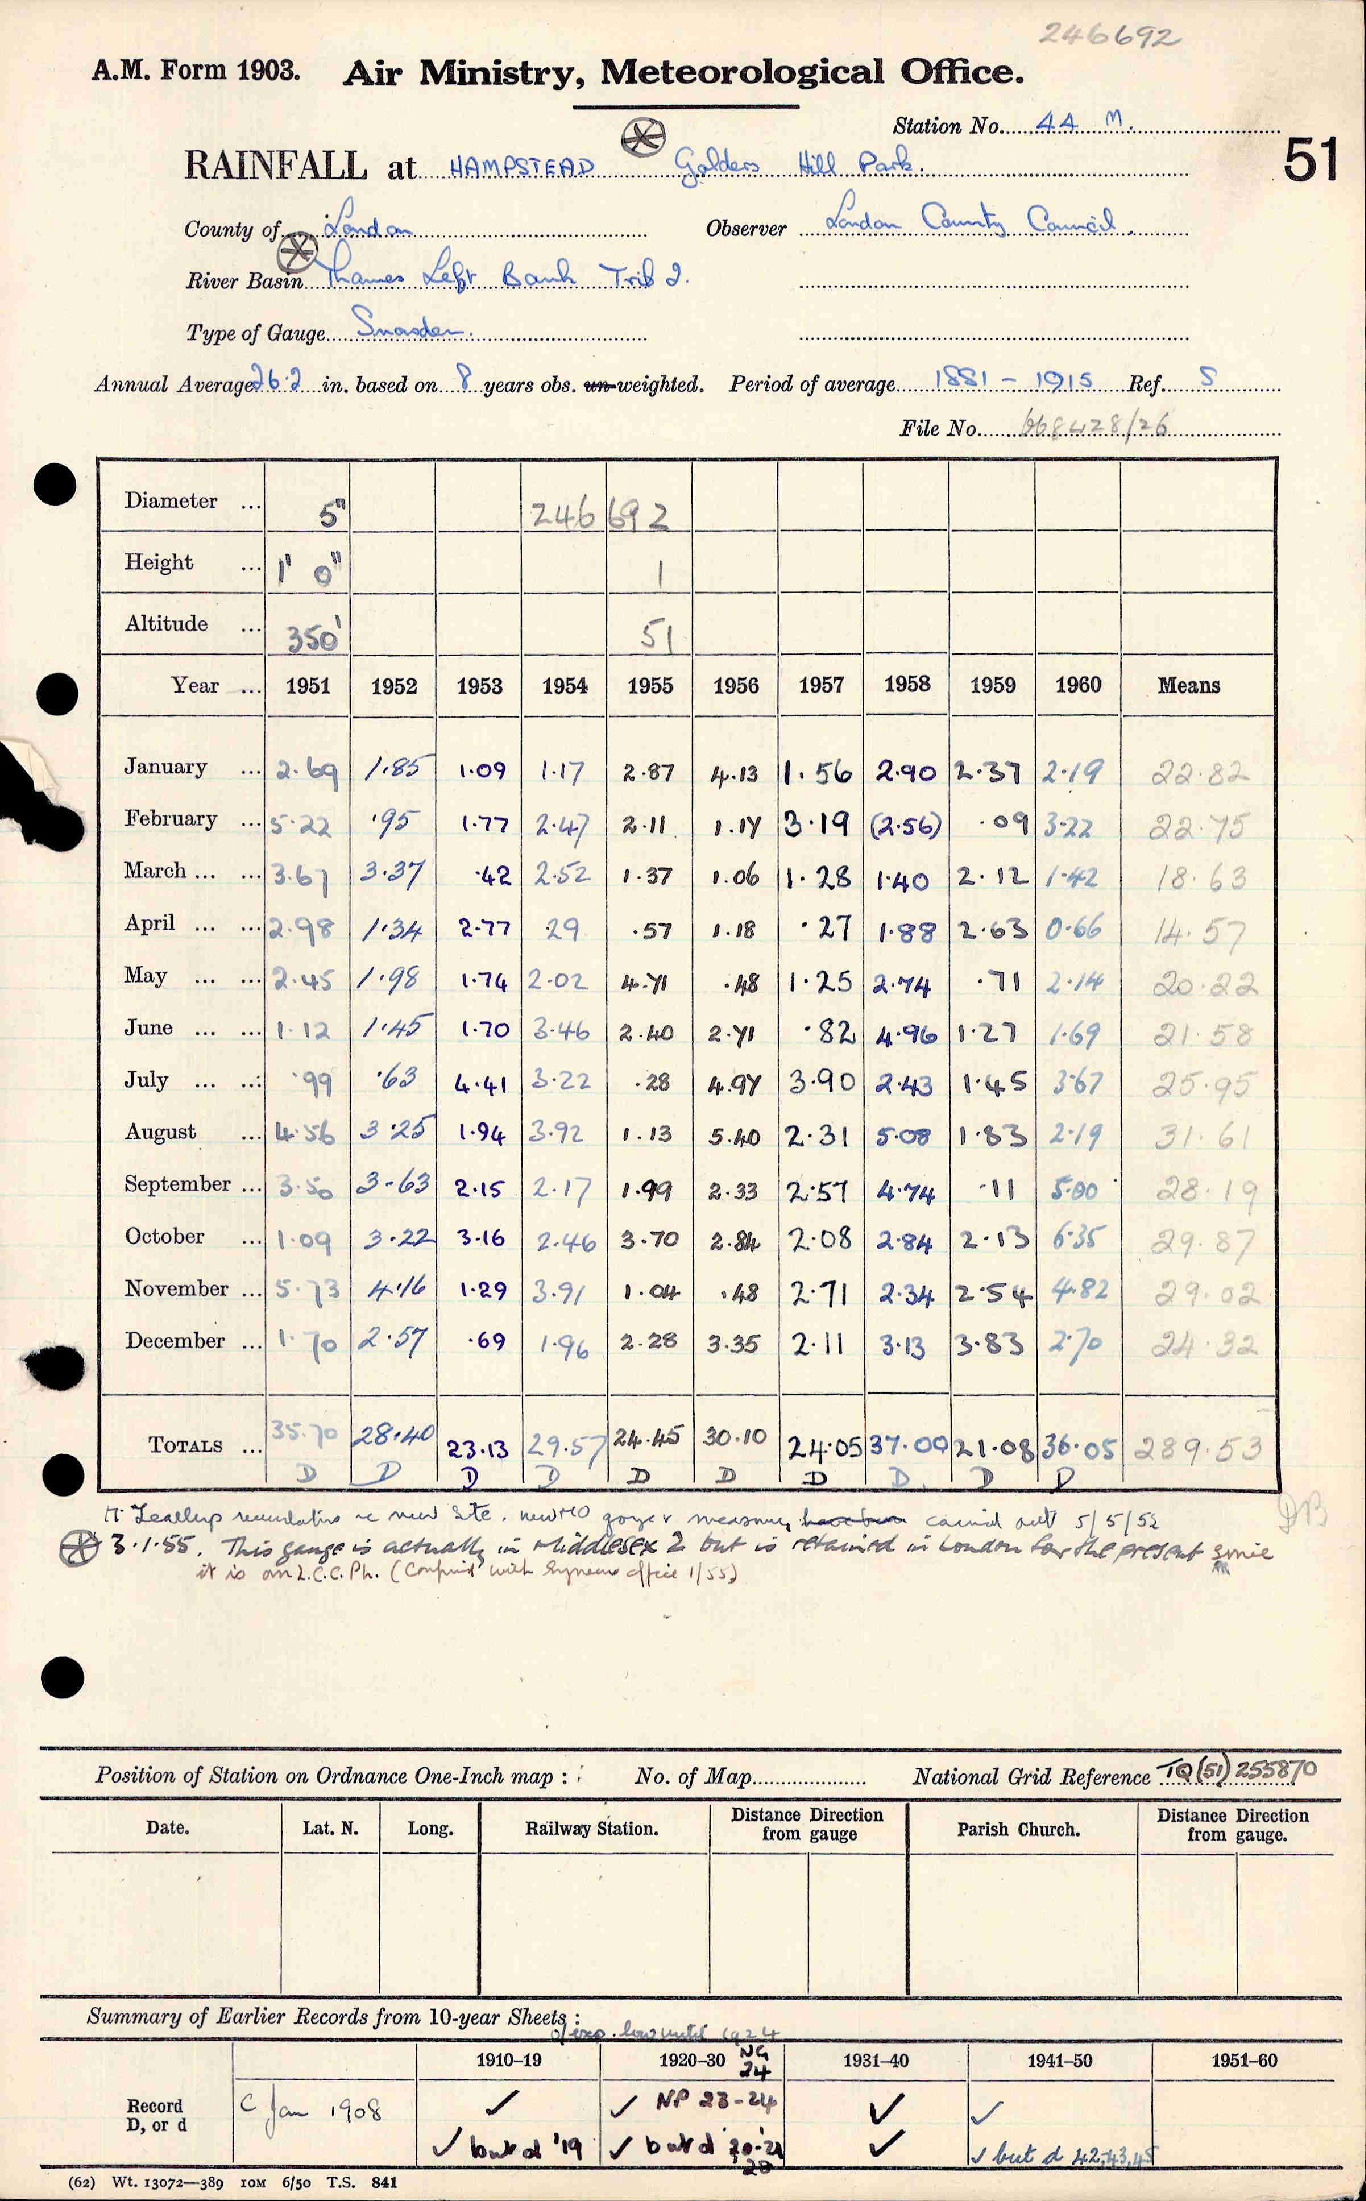 246692
A.M. Form 1903. Air Ministry, Meteorological Office.
Station No. 44 M.
RAINFALL at HAMPSTEAD Golders Hill Park.
51
County of London Observer London County Council.
River Basin Thames Left Bank Trib 2.
Type of Gauge Snowdon.
Annual Average 26.2 in. based on 8 years obs. un-weighted. Period of average 1881 - 1915 Ref. S
File No. 668428/26
Diameter ... 5" 246692
Height ... 1' 0" 1
Altitude ... 350' 51
Year ... 1951 1952 1953 1954 1955 1956 1957 1958 1959 1960 Means
January ... 2.69 1.85 1.09 1.17 2.87 4.13 1.56 2.90 2.37 2.19 22.82
February ... 5.22 .95 1.77 2.47 2.11 1.17 3.19 (2.56) .09 3.22 22.75
March ... ... 3.67 3.37 .42 2.52 1.37 1.06 1.28 1.40 2.12 1.42 18.63
April ... ... 2.98 1.34 2.77 .29 .57 1.18 .27 1.88 2.63 0.66 14.57
May ... ... 2.45 1.98 1.74 2.02 4.71 .48 1.25 2.74 .71 2.14 20.22
June ... ... 1.12 1.45 1.70 3.46 2.40 2.71 .82 4.96 1.27 1.69 21.58
July ... ... .99 .63 4.41 3.22 .28 4.97 3.90 2.43 1.45 3.67 25.95
August ... 4.56 3.25 1.94 3.92 1.13 5.40 2.31 5.08 1.83 2.19 31.61
September ... 3.50 3.63 2.15 2.17 1.99 2.33 2.57 4.74 .11 5.00 28.19
October ... 1.09 3.22 3.16 2.46 3.70 2.84 2.08 2.84 2.13 6.35 29.87
November ... 5.73 4.16 1.29 3.91 1.04 .48 2.71 2.34 2.54 4.82 29.02
December ... 1.70 2.57 .69 1.96 2.28 3.35 2.11 3.13 3.83 2.70 24.32
TOTALS ... 35.70 28.40 23.13 29.57 24.45 30.10 24.05 37.00 21.08 36.05 289.53
D D D D D D D D D D
re new site. new MO gauge & measure have been carried out 5/5/52
3.1.55. This gauge is actually in Middlesex 2 but is retained in London for the present since
it is an L.C.C. (Confirmed with office 1/55)
Position of Station on Ordnance One-Inch map : No. of Map National Grid Reference TQ (51) 255870
Date. Lat. N. Long. Railway Station. Distance Direction from gauge Parish Church. Distance Direction from gauge.
Summary of Earlier Records from 10-year Sheets :
o/exp. low until 1924
1910–19 1920–30 NG 24 1931–40 1941–50 1951–60
Record D, or d C Jan 1908 ✓ ✓ NP 23-24 ✓ ✓
✓ but d '19 ✓ but d 20-21 28 ✓ ✓ but d 42,43,45
(62) Wt. 13072—389 10M 6/50 T.S. 841